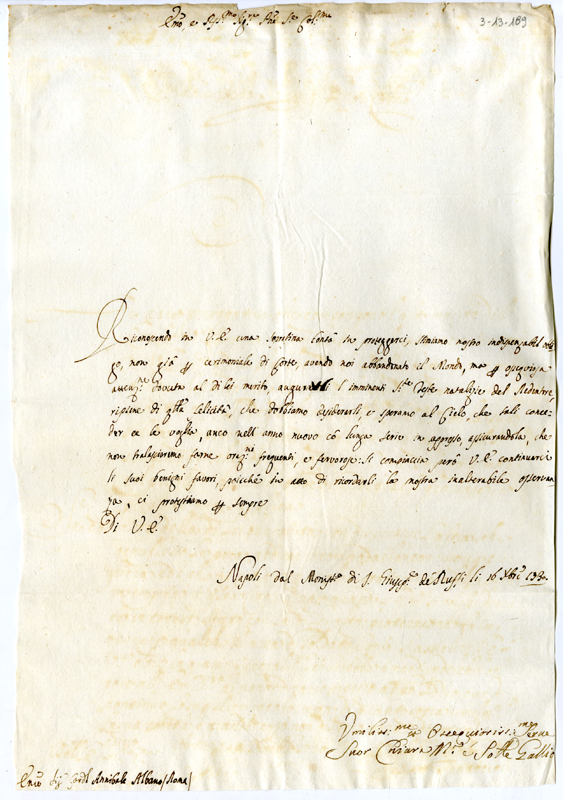 3-13-169
Emo, e Rev.mo Sig.re Pne Col.mo
Riconoscendo in V. E. una bontà in proteggerci, stimiamo nostro indispensabil
go, non già cerimoniale di Corte, avendo noi abbandonato il Mondo, ma ossequiosa
attenz.ne dovuta al di lei merito, augurarli l'imminenti S.te Feste natalizie del Redentore,
ripiene di felicità, che dobbiamo desiderarli, e speramo al Cielo, che tali conce-
der ce le voglia, anco nell'anno nuovo cò lunga serie in appresso, assicurandola, che
non tralassiremo farne oraz.ni frequenti, e fervorose: Si compiaccia però V. E. continuarci
li suoi benigni favori, poicchè in atto di ricordarli la nostra inalterabile osservan-
za, ci protestiamo sempre
Di V. E.
Napoli dal Monist.o di S. Giusep.e de Ruffi li 16 Xbre 1730.
Umiliss.me et Ossequiosiss.me Serve
Suor Chiara M.a e Sorelle Gallio
Emo Sig. Card. Annibale Albano (Roma)